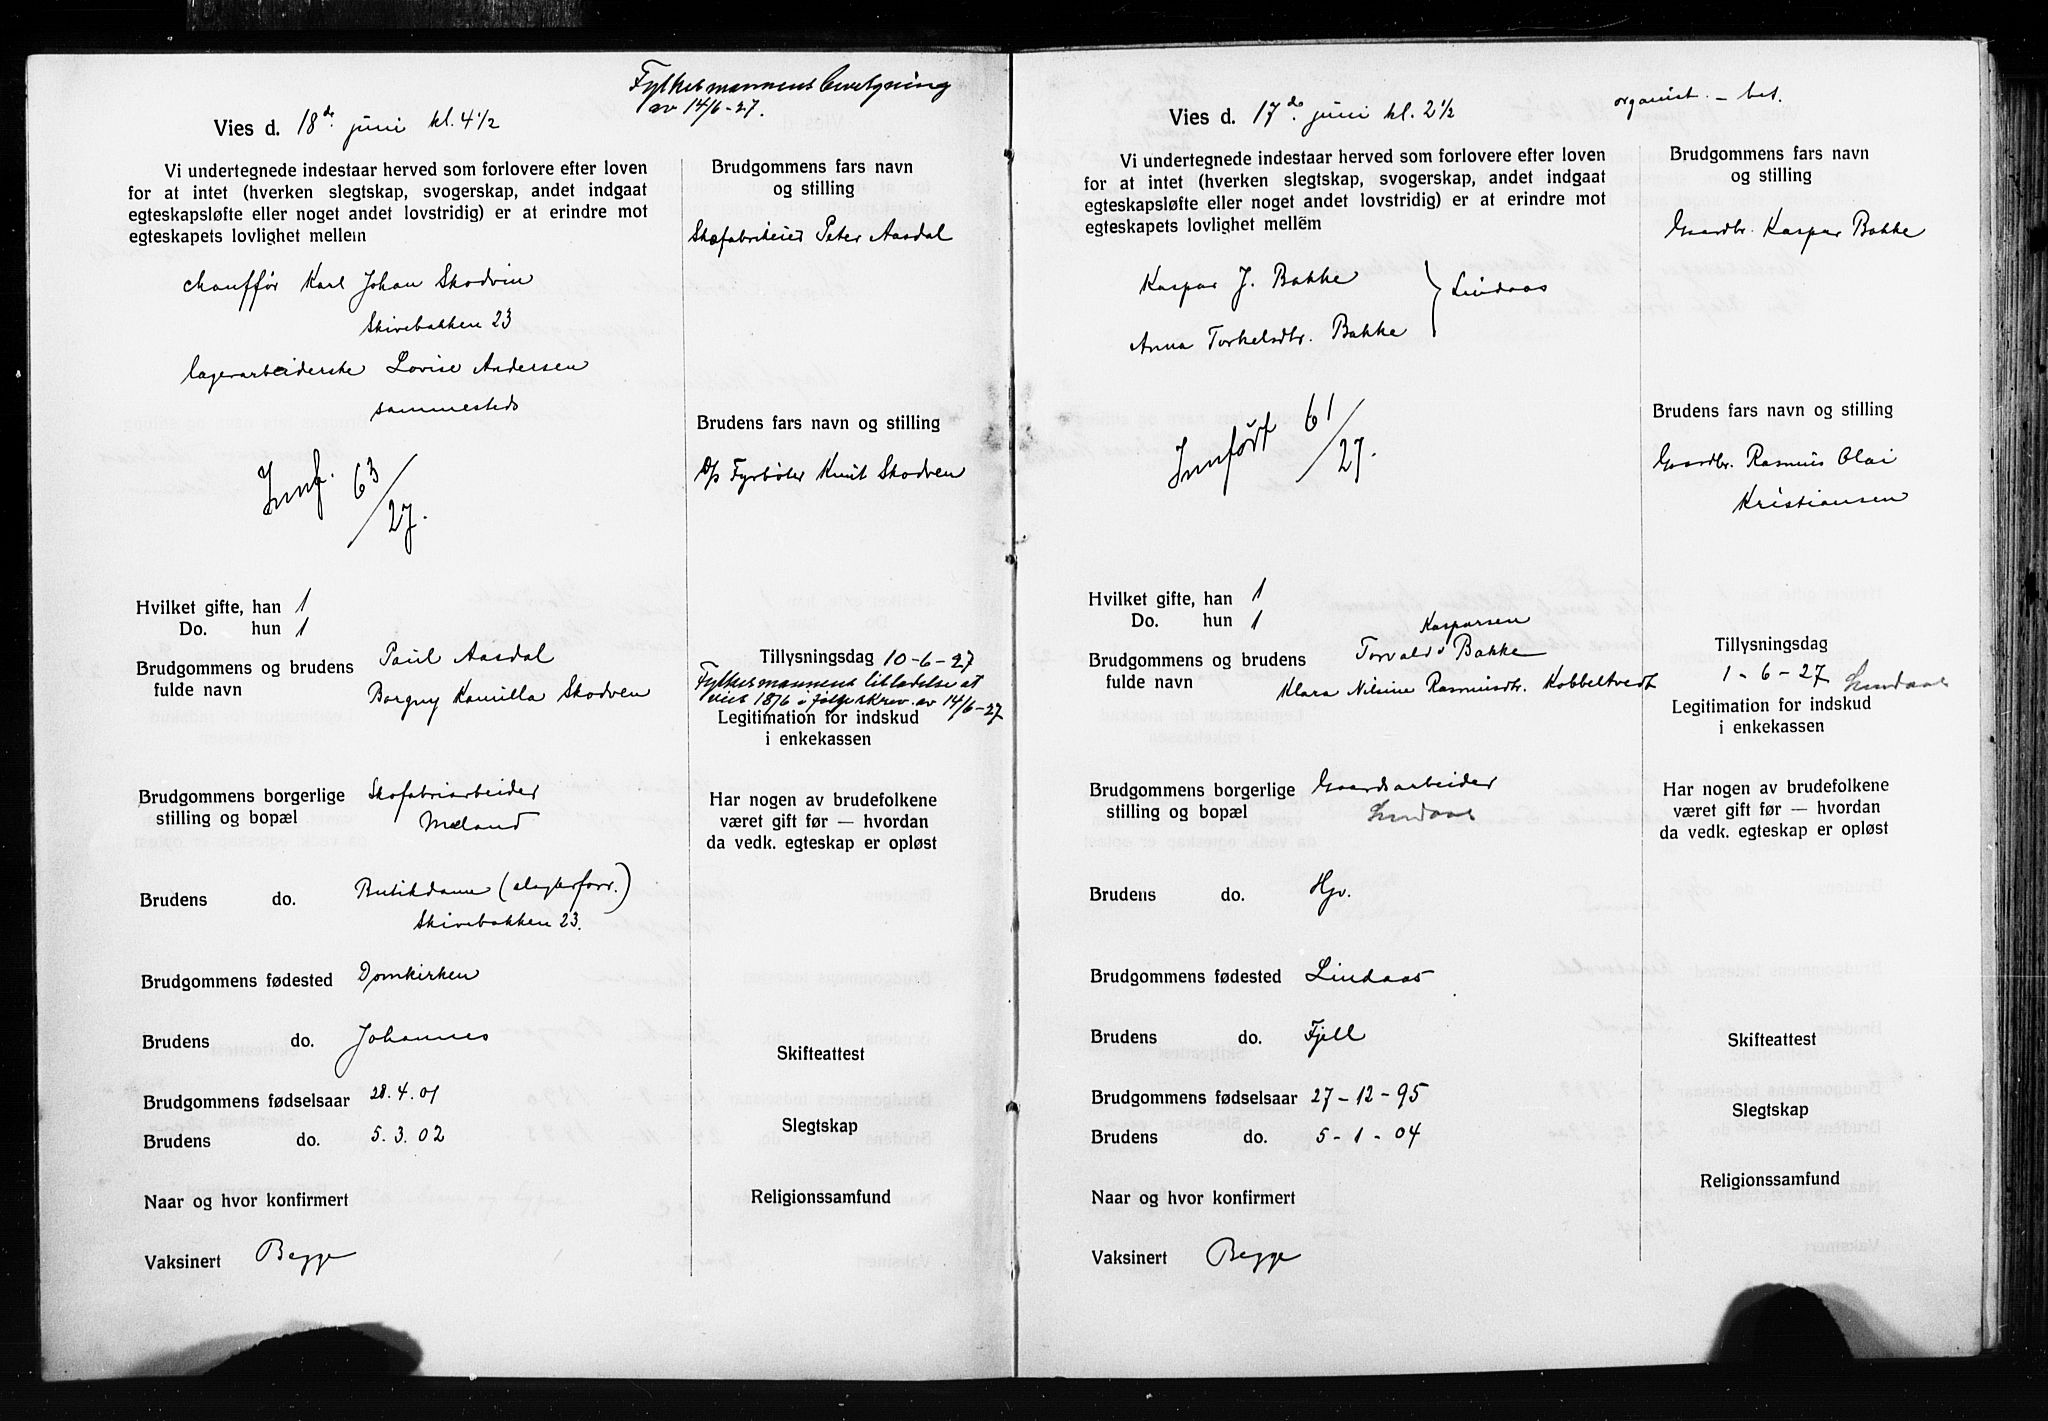 Fylkesmannens bevilgning
av 14/6-27.
Vies d. 18de juni kl. 4½
Vi undertegnede indestaar herved som forlovere efter loven
for at intet (hverken slegtskap, svogerskap, andet indgaat
egteskapsløfte eller noget andet lovstridig) er at erindre mot
egteskapets lovlighet mellem
chauffør Karl Johan Skodvin
Skivebakken 23
lagerarbeiderske Lovise Andersen
sammesteds
Innf. 63/27.
Brudgommens fars navn
og stilling
Skofabrikeier Peter Aasdal
Brudens fars navn og stilling
Fyrbøter Knut Skodven
Hvilket gifte, han 1
Do. hun 1
Brudgommens og brudens
fulde navn
Paul Aasdal
Borgny Kamilla Skodven
Tillysningsdag 10-6-27
Fylkesmannens tilladelse at
vies 18/6 i følge skrev. av 14/6-27
Legitimation for indskud
i enkekassen
Brudgommens borgerlige
stilling og bopæl
Skofabriarbeider
Meland
Har nogen av brudefolkene
været gift før — hvordan
da vedk. egteskap er opløst
Brudens do. Butikdame (slagterforr.)
Skivebakken 23.
Brudgommens fødested Domkirken
Brudens do. Johannes
Skifteattest
Brudgommens fødselsaar 28.4.01
Brudens do. 5.3.02
Slegtskap
Naar og hvor konfirmert
Religionssamfund
Vaksinert Begge
organist. – bet.
Vies d. 17de juni kl. 2½
Vi undertegnede indestaar herved som forlovere efter loven
for at intet (hverken slegtskap, svogerskap, andet indgaat
egteskapsløfte eller noget andet lovstridig) er at erindre mot
egteskapets lovlighet mellem
Kaspar J. Bakke
Anna Torkelsdtr. Bakke
Lindaas
Innført 61/27.
Brudgommens fars navn
og stilling
Gaardbr. Kaspar Bakke
Brudens fars navn og stilling
Gaardbr. Rasmus Olai
Kristiansen
Hvilket gifte, han 1
Do. hun 1
Brudgommens og brudens
fulde navn
Kasparsen
Torvald Bakke
Klara Nilsine Rasmusdtr. Kobbeltvedt
Tillysningsdag
1-6-27 Lindaas
Legitimation for indskud
i enkekassen
Brudgommens borgerlige
stilling og bopæl
Gaardsarbeider
Lindaas
Har nogen av brudefolkene
været gift før — hvordan
da vedk. egteskap er opløst
Brudens do. Hjv.
Brudgommens fødested Lindaas
Brudens do. Fjell
Skifteattest
Brudgommens fødselsaar 27-12-95
Brudens do. 5-1-04
Slegtskap
Naar og hvor konfirmert
Religionssamfund
Vaksinert Begge